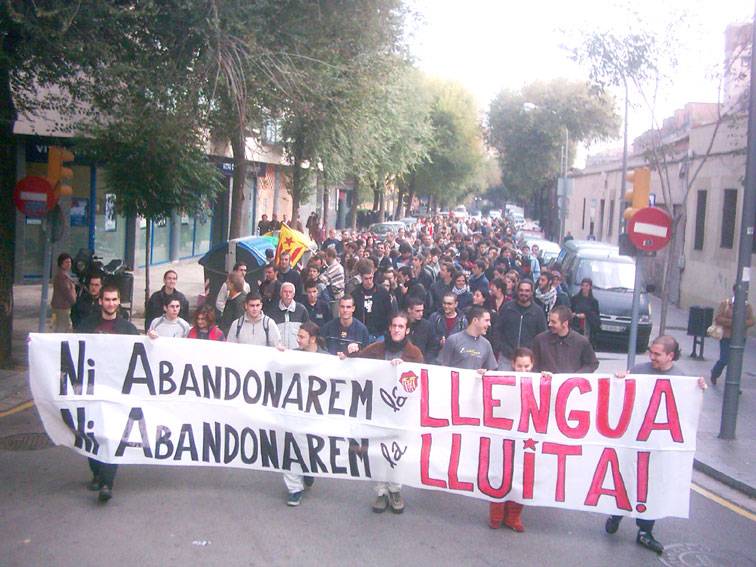 Ni ABANDONAREM la LLENGUA
Ni ABANDONAREM la LLUiTA!